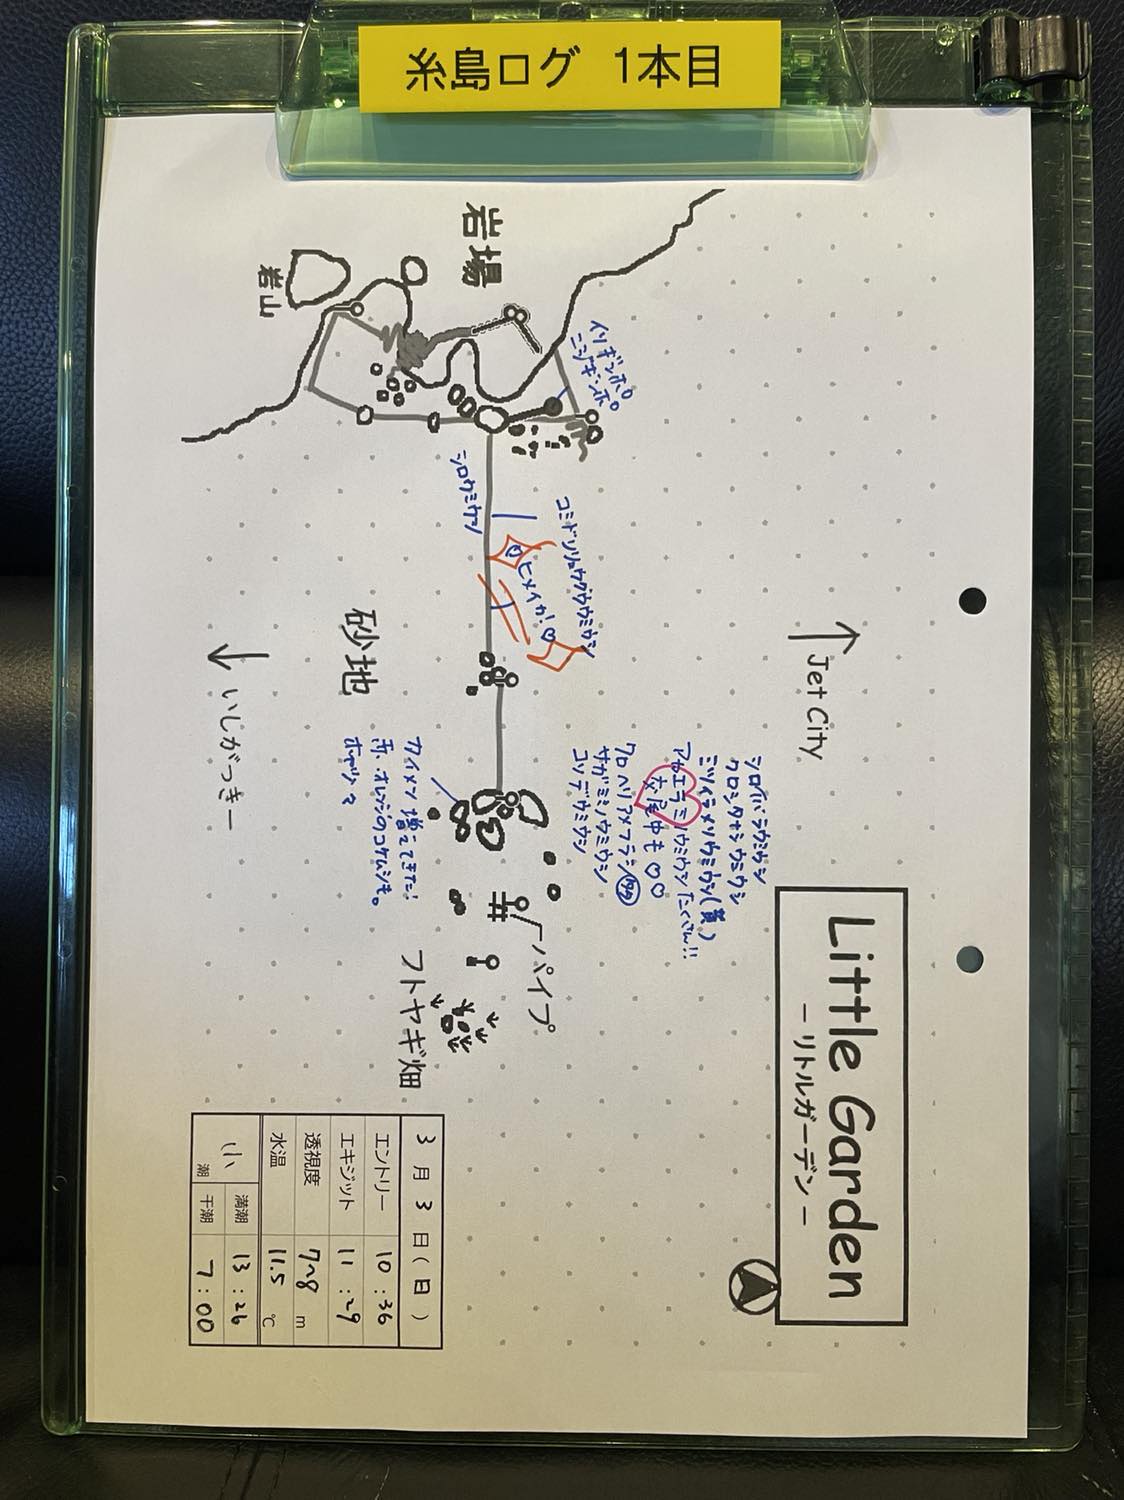 糸島ログ 1本目
Little Garden
－リトルガーデン－
Jet City
岩場
岩山
イソギンポ
ニジギンポ
シロウミウシ
コミドリリュウグウウミウシ
ヒメイカ!♡
砂地
いしがっきー
シロイバラウミウシ
クロシタナシウミウシ
ミツイラメリウミウシ(黄)
アカエラミノウミウシたくさん!!
交尾中も♡♡
クロヘリアメフラシ
サガミミノウミウシ
コソデウミウシ
カイメン増えてきた!
赤、オレンジのコケムシも。
ホヤツ
パイプ
フトヤギ畑
3月3日(日)
エントリー 10:36
エキジット 11:29
透視度 7~8 m
水温 11.5 ℃
小潮 満潮 13:26
干潮 7:00